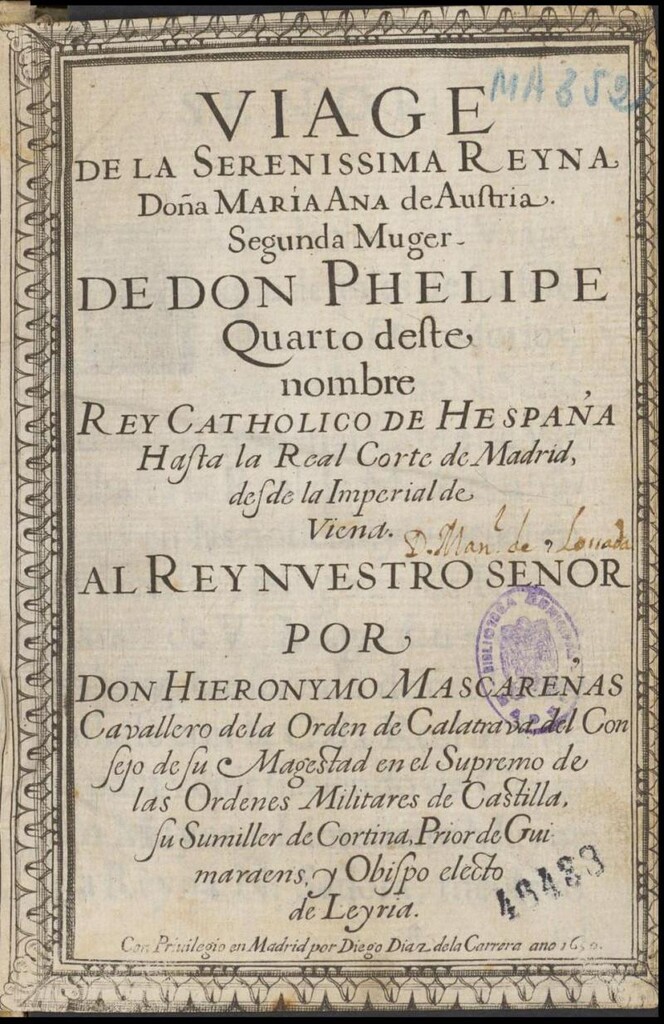 MA 852
VIAGE
DE LA SERENISSIMA REYNA
Doña MARÍA ANA de Auſtria.
Segunda Muger
DE DON PHELIPE
Quarto deſte
nombre
REY CATHOLICO DE HESPAÑA
Haſta la Real Corte de Madrid,
deſde la Imperial de
Viena.
D. Man.l de Losada
AL REY NVESTRO SEÑOR
POR
BIBLIOTECA MUNICIPAL
DON HIERONYMO MASCAREÑAS
Cavallero de la Orden de Calatrava, del Con
ſejo de ſu Mageſtad en el Supremo de
las Ordenes Militares de Caſtilla,
ſu Sumiller de Cortina, Prior de Gui
maraens, y Obiſpo electo
de Leyria.
Con Privilegio en Madrid por Diego Diaz de la Carrera ano 1650.